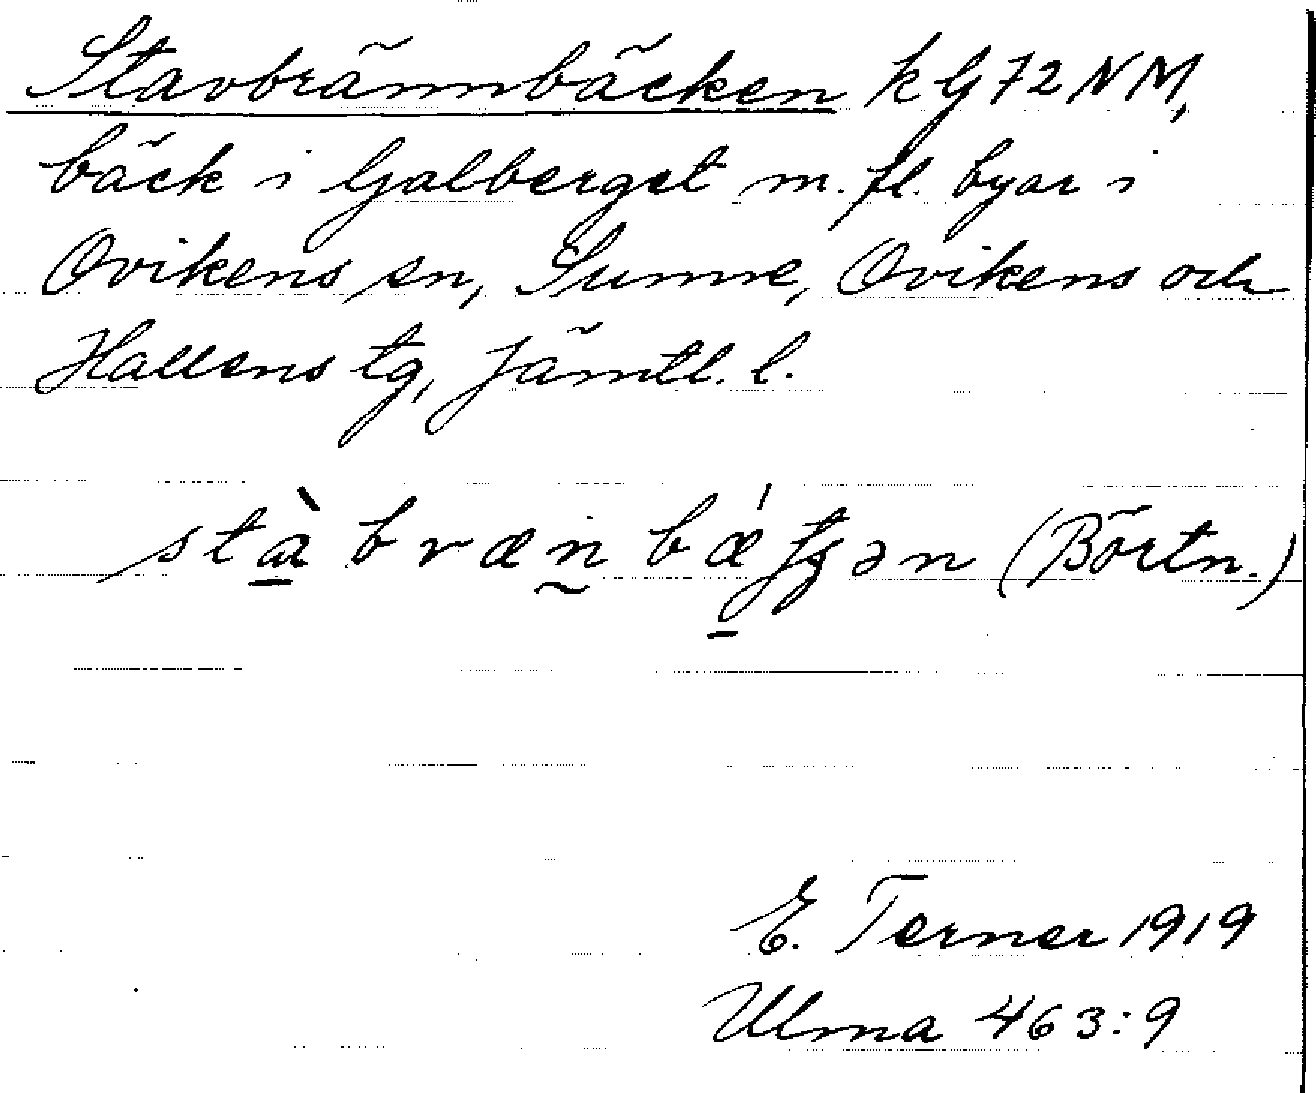 Stavbrännbäcken k G 72 NM,
bäck i Galberget m. fl. byar i
Ovikens sn, Sunne, Ovikens och
Hallens tg, Jämtl. l.
stàbræn bǽ ən (Börtn.)
E. Terner 1919
Ulma 463:9